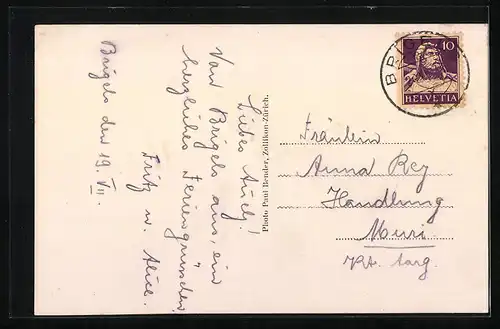 Brigels den 19. VII.
Liebes Anely!
Von Brigels aus, ein
herzliches Feriengrüsschen
Fritz u. Alice.
Photo Paul Bender, Zollikon-Zürich.
10
HELVETIA
Fräulein
Anna Rey
Handlung
Muri
Kt. Aarg.